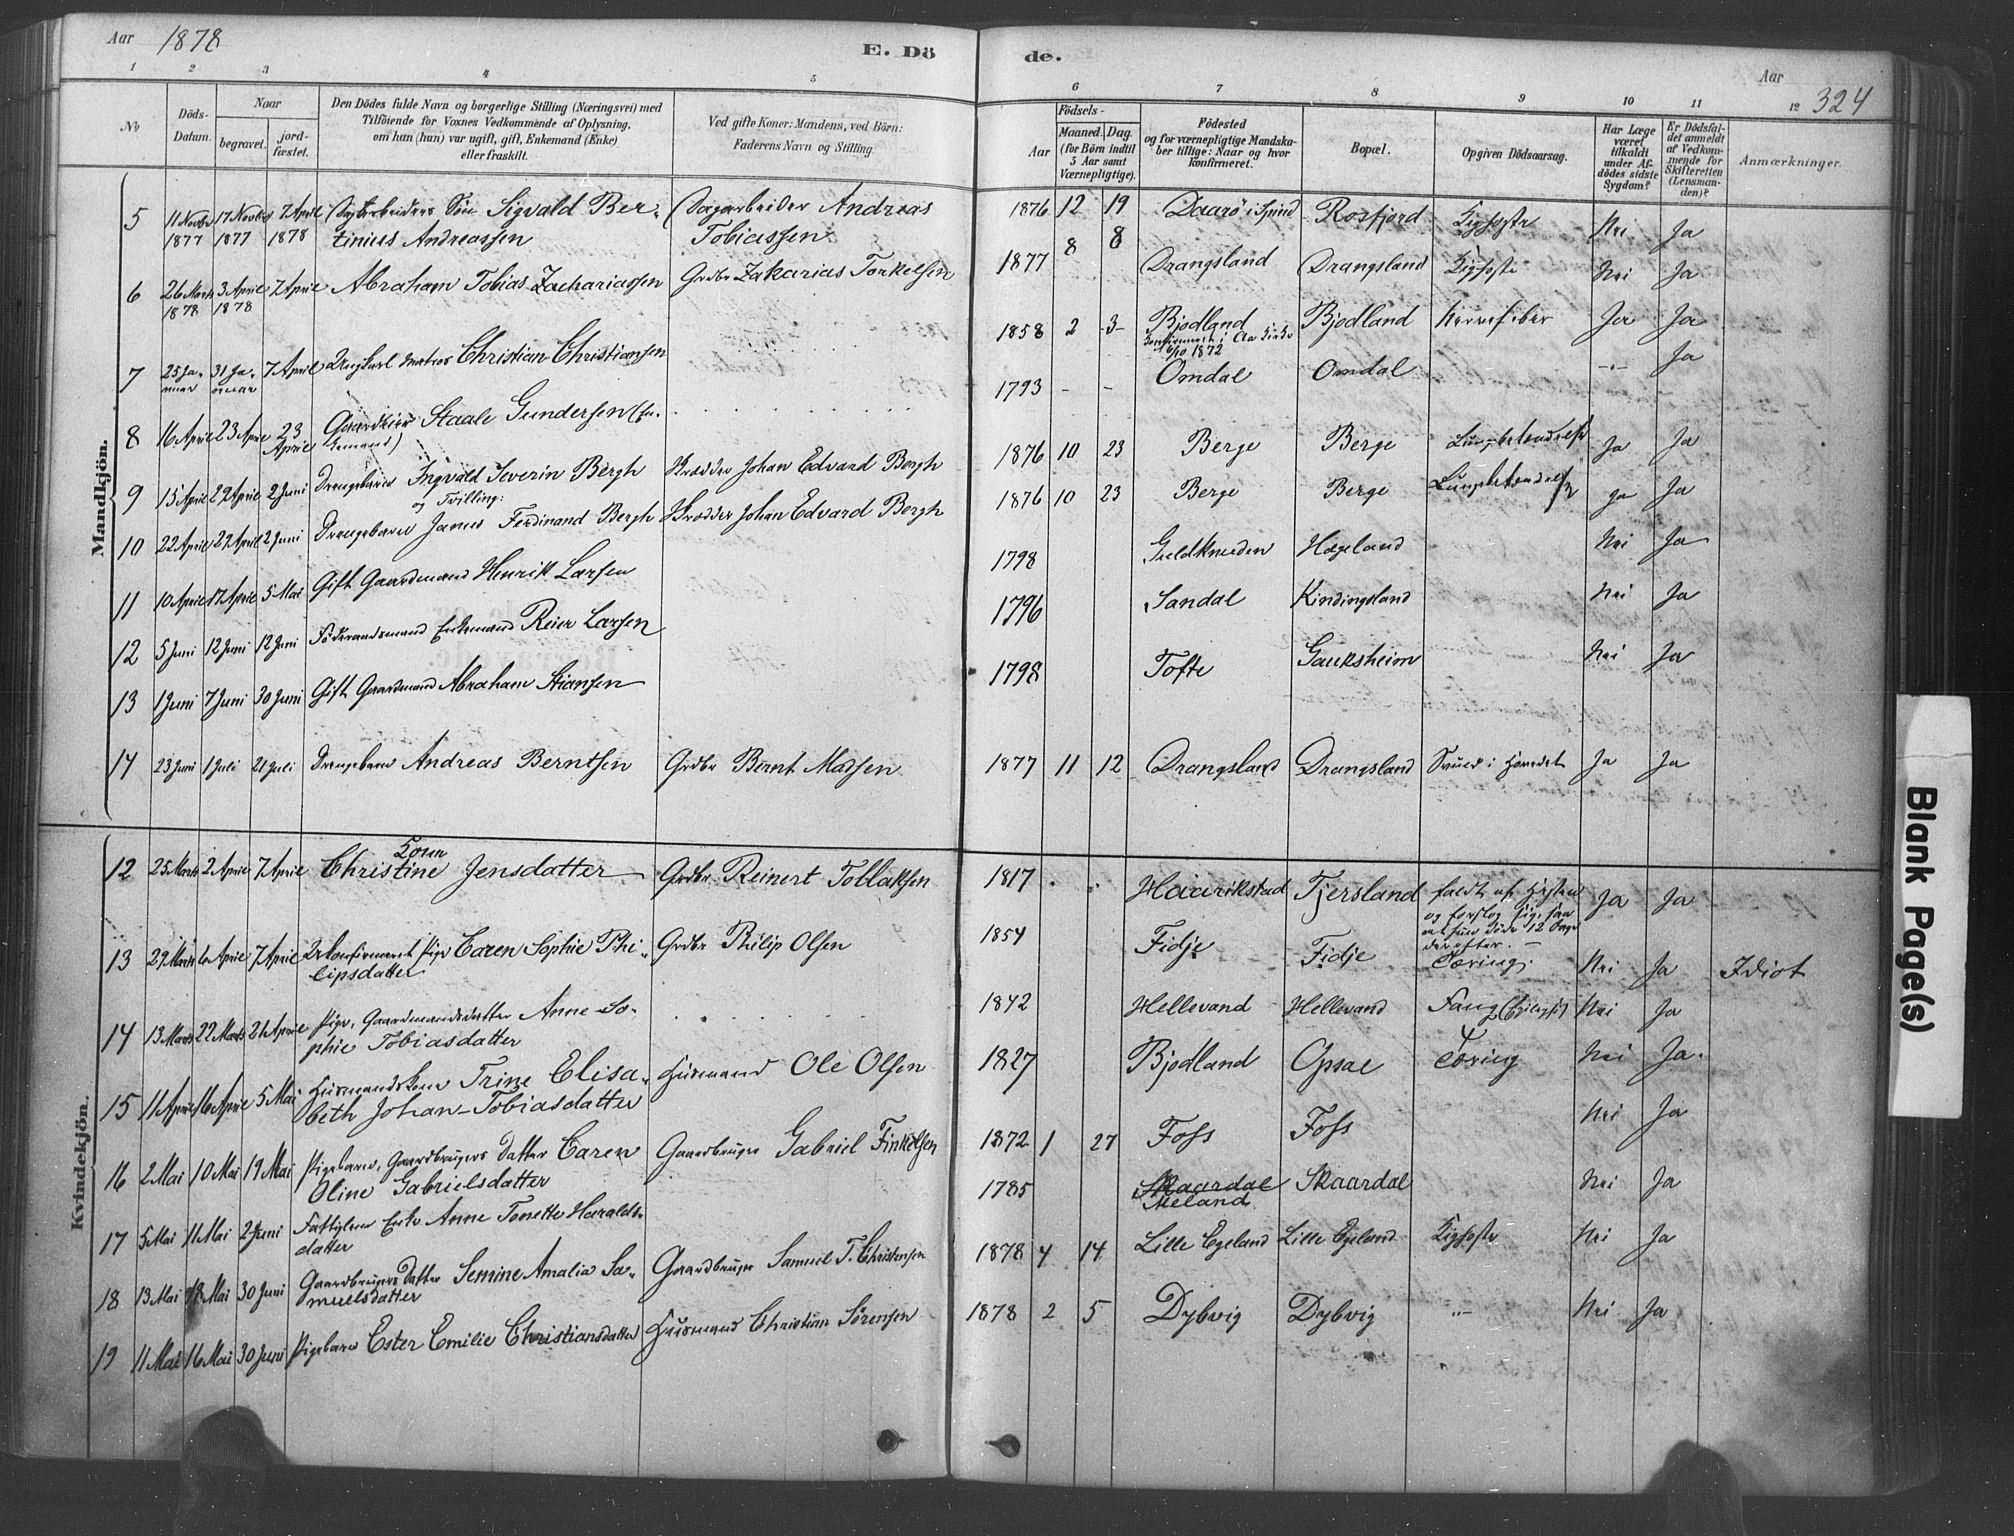 Aar 1878
E. Dö
de.
Aar
324
1 2 3 4 5 6 7 8 9 10 11 12
No
Döds-
Datum.
Naar
begravet.
jord-
fæstet.
Den Dödes fulde Navn og borgerlige Stilling (Næringsvei) med
Tilföiende for Voxnes Vedkommende af Oplysning,
om han (hun) var ugift, gift, Enkemand (Enke)
eller fraskilt.
Ved gifte Koner: Mandens, ved Börn:
Faderens Navn og Stilling.
Födsels-
Aar
Maaned. Dag.
(for Börn indtil
5 Aar samt
Værnepligtige).
Födested
og for værnepligtige Mandska-
ber tillige: Naar og hvor
konfirmeret.
Bopæl.
Opgiven Dödsaarsag.
Har Læge
været
tilkaldt
under Af-
dödes sidste
Sygdom?
Er Dödsfal-
det anmeldt
af Vedkom-
mende for
Skifteretten
(Lensman-
den)?
Anmærkninger.
Mandkjön.
5 11 Novbr 17 Novbr 7 April Søn Sigvald Ber- Sagarbeider Andreas 1876 12 19 Daarø i Spind Rosfjord Nei Ja
1877 1877 1878 tinius Andreassen Tobiassen
6 26 Marts 3 April 7 April Abraham Tobias Zachariassen Grdbr Zakarias Torkelsen 1877 8 8 Drangsland Drangsland Nei Ja
1878 1878
7 25 Ja- 31 Ja- 7 April Ungkarl Matros Christian Christiansen 1858 2 3 Bjodland Bjodland Nervefeber Ja Ja
nuar nuar 6/10 1872
8 16 April 23 April 23 Staale Gundersen (En- 1793 - - Omdal Omdal Ja
April kemand)
9 15 April 29 April 2 Juni Drengebarn Ingvald Severin Bergh Skrædder Johan Edvard Bergh 1876 10 23 Berge Berge Lungebetændelse Ja Ja
og Tvilling:
10 22 April 29 April 2 Juni Drengebarn Janus Ferdinand Bergh Skrædder Johan Edvard Bergh 1876 10 23 Berge Berge Lungebetændelse Ja Ja
11 10 April 17 April 5 Mai Gift Gaardmand Henrik Larsen 1798 Guldknuden Hægeland Nei Ja
12 5 Juni 12 Juni 12 Juni Føderaadsmand Enkemand Reier Larsen 1796 Sandal Kindingsland Nei Ja
13 1 Juni 7 Juni 30 Juni Gift Gaardmand Abraham Stiansen 1798 Tofte Gauksheim Nei Ja
14 23 Juni 1 Juli 21 Juli Drengebarn Andreas Berntsen Grdbr Bernt Madsen 1877 11 12 Drangsland Drangsland i Hovedet Ja Ja
Kvindekjön.
Kone
12 25 Marts 2 April 7 April Christine Jensdatter Grdbr. Reinert Tollaksen 1817 . . Haarikstad Tjersland faldt af Hesten Ja Ja
og forslog sig, saa
at hun døde 12 Dage
derefter. -
13 29 Marts 6 April 7 April Ukonfirmeret Pige Caren Sophie Phi- Grdbr Philip Olsen 1854 Fidje Fidje Tæring. Nei Ja Idiot
lipsdatter
14 13 Marts 22 Marts 21 April Pige, Gaardmandsdatter Anne So- 1842 Hellevand Hellevand Nei Ja
phie Tobiasdatter
15 11 April 16 April 5 Mai Husmandskone Trine Elisa- Husmand Ole Olsen 1827 Bjodland Opsal Tæring Nei Ja
beth Johan-Tobiasdatter
16 2 Mai 10 Mai 19 Mai Pigebarn, Gaardbrugers Datter Caren Gaardbruger Gabriel Finkelsen 1872 1 27 Foss Foss Nei Ja
Oline Gabrielsdatter
17 5 Mai 11 Mai 2 Juni Enke Anne Tonette Haralds- 1785 Skaardal Skaardal Nei Ja
datter
18 13 Mai 18 Mai 30 Juni Gaardbrugers Datter Semine Amalia Sa- Gaardbruger Samuel T. Christensen 1878 4 14 Lille Egeland Lille Egeland Nei Ja
muelsdatter
19 11 Mai 16 Mai 30 Juni Pigebarn Ester Emilie Christiansdatter Husmand Christian Sørensen 1878 2 5 Dybvig Dybvig -"- Nei Ja
Blank Page(s)